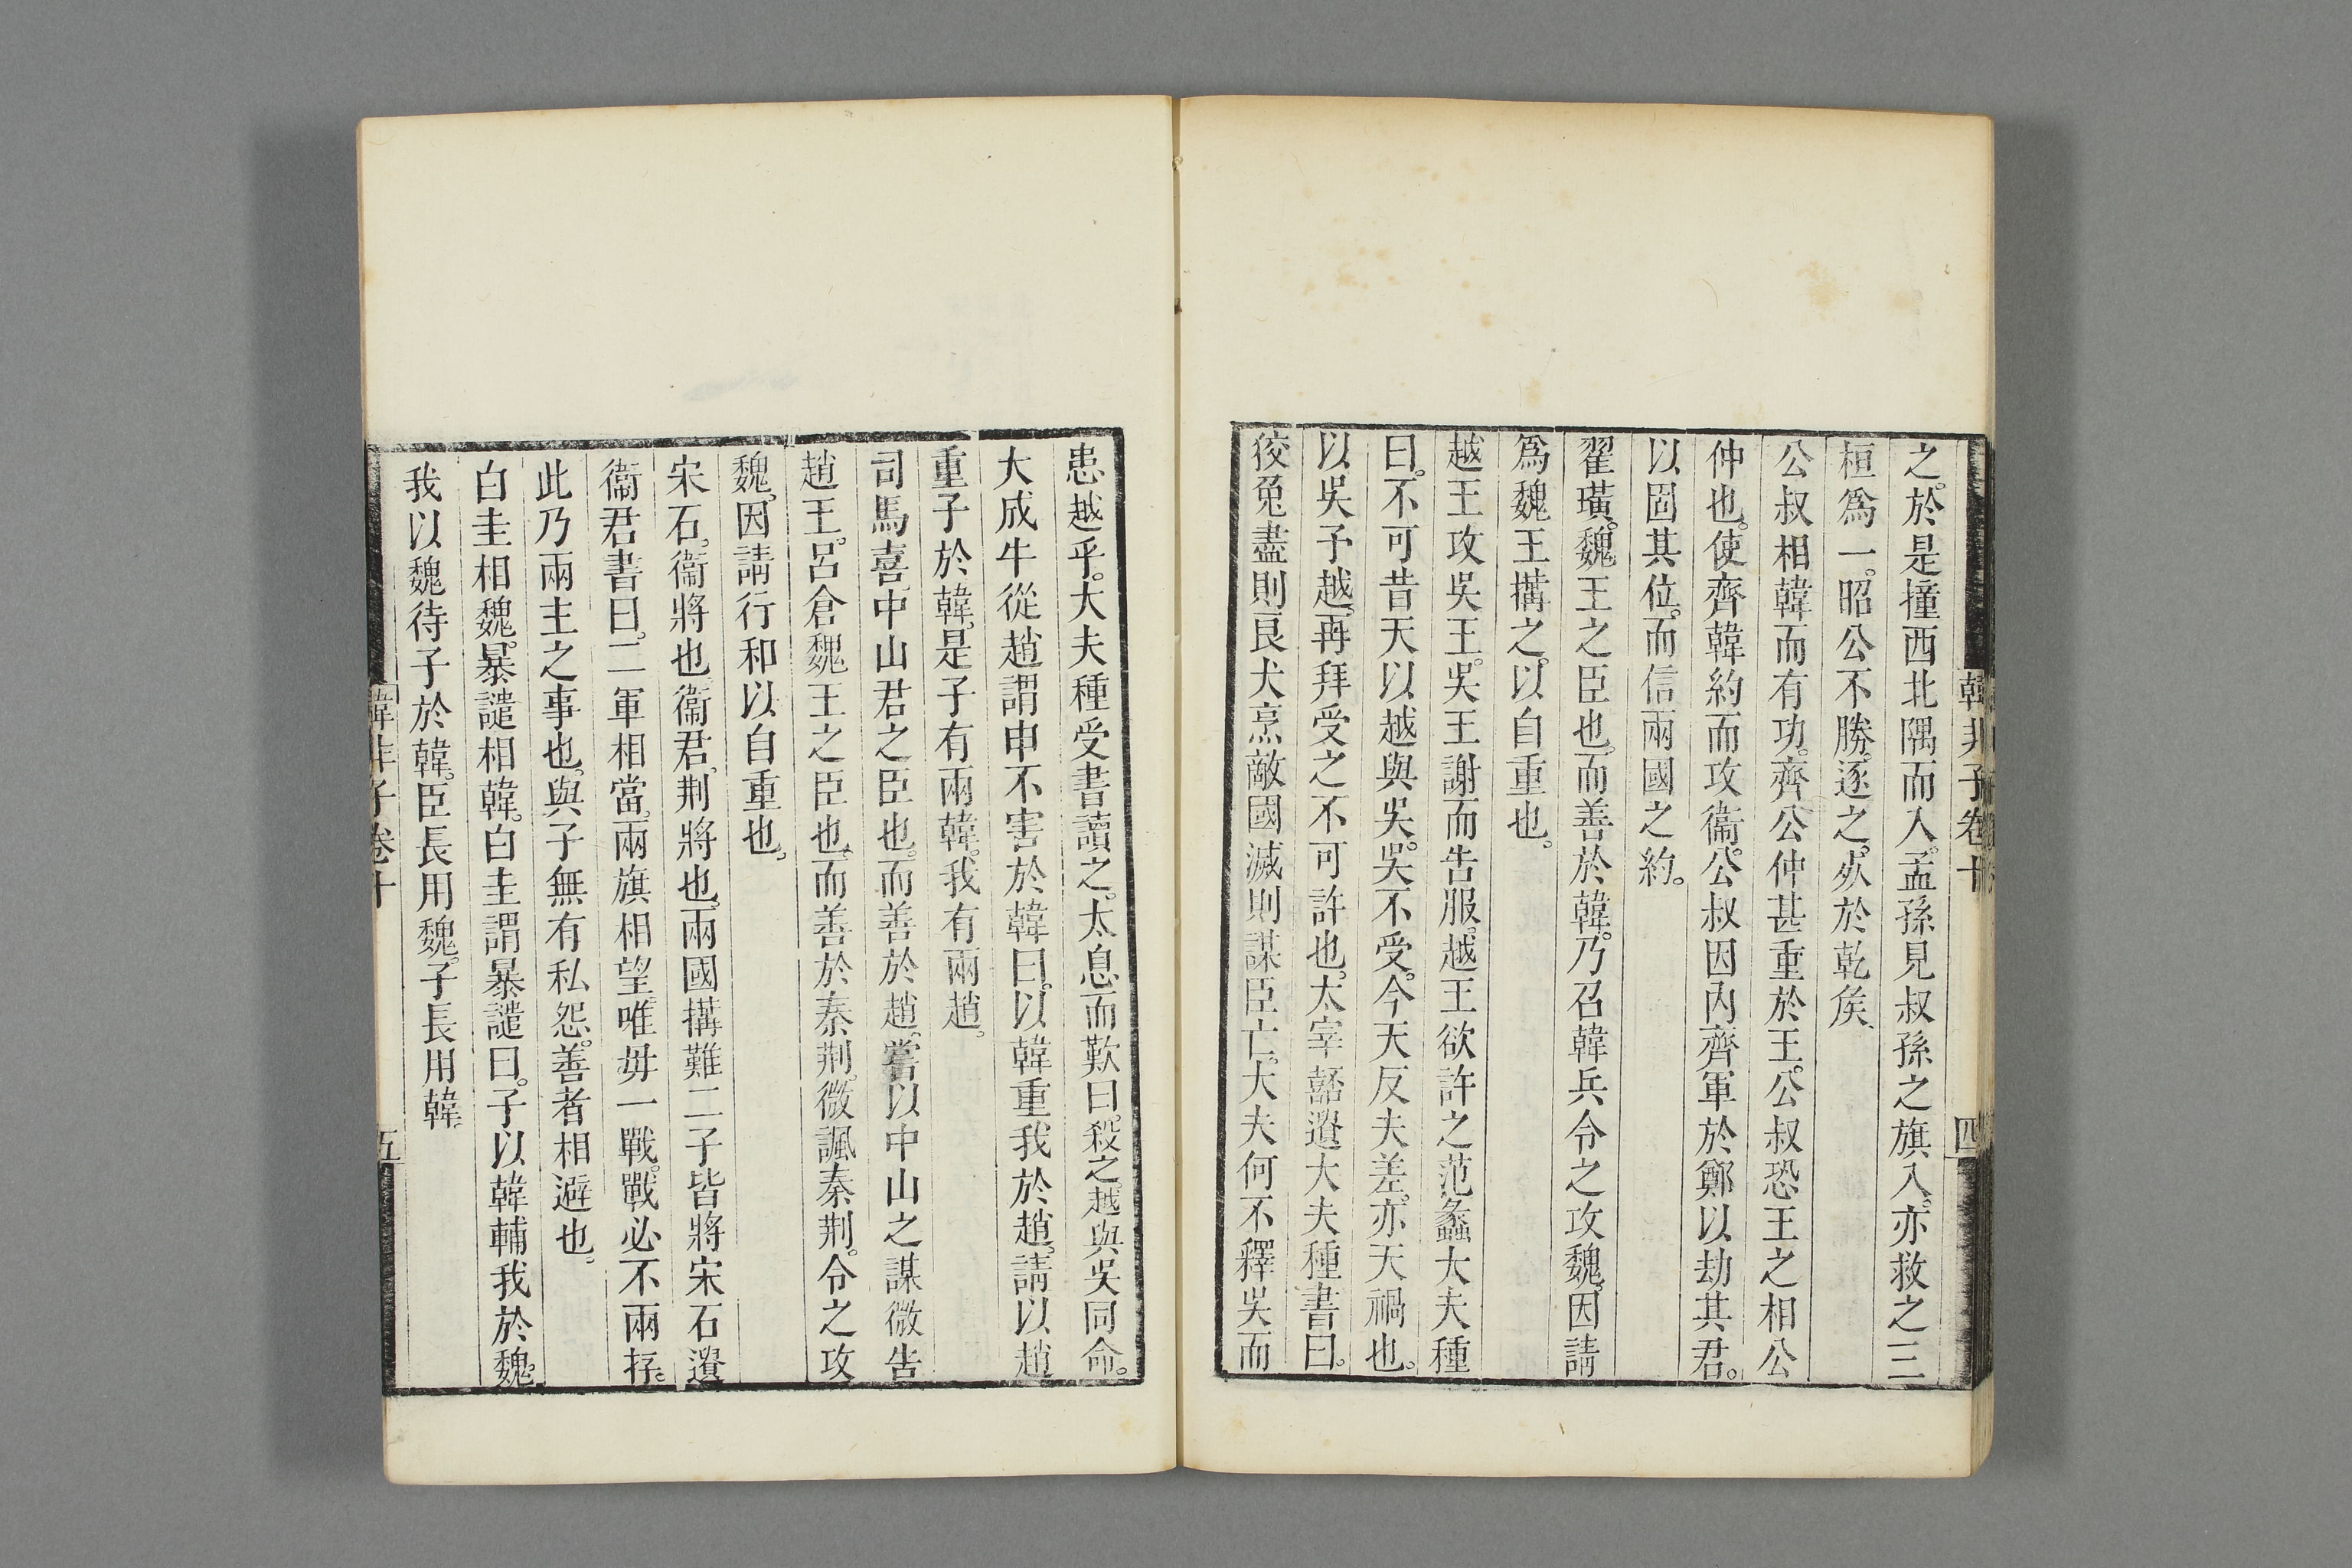 韓非子卷十
四
之。於是撞西北隅而入。孟孫見叔孫之旗入。亦救之三
桓爲一。昭公不勝。逐之。死於乾矦。
公叔相韓而有功。齊公仲甚重於王。公叔恐王之相公
仲也。使齊韓約而攻衞。公叔因內齊軍於鄭以劫其君。
以固其位。而信兩國之約。
翟璜。魏王之臣也。而善於韓。乃召韓兵令之攻魏。因請
爲魏王搆之。以自重也。
越王攻吳王。吳王謝而告服。越王欲許之范蠡大夫種
曰。不可昔天以越與吳。吳不受。今天反夫差。亦天禍也。
以吳予越。再拜受之不可許也。太宰嚭遺大夫種書曰。
狡兎盡則良犬烹敵國滅則謀臣亡。大夫何不釋吳而
患越乎。大夫種受書讀之。太息而歎曰。殺之。越與吳同命。
大成牛從趙謂申不害於韓曰。以韓重我於趙。請以趙
重子於韓。是子有兩韓。我有兩趙。
司馬喜。中山君之臣也。而善於趙。嘗以中山之謀微告
趙王。呂倉魏王之臣也。而善於秦荆。微諷秦荆。令之攻
魏。因請行和以自重也。
宋石。衞將也衞君。荆將也。兩國搆難二子皆將宋石遺
衞君書曰。二軍相當。兩旗相望。唯毋一戰。戰必不兩存。
此乃兩主之事也。與子無有私怨。善者相避也。
白圭相魏。暴譴相韓。白圭謂暴譴曰。子以韓輔我於魏。
我以魏待子於韓。臣長用魏。子長用韓。
韓非子卷十
五